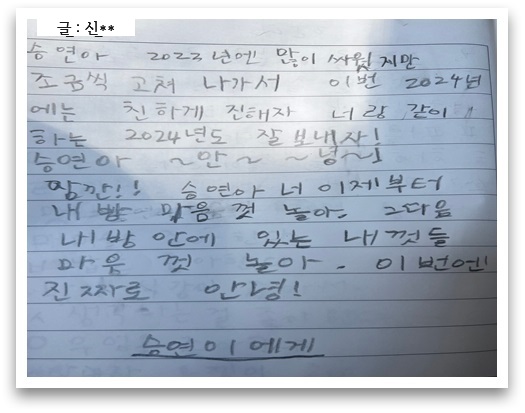 글 : 신**
승연아 2023년엔 많이 싸웠지만
조금씩 고쳐 나가서 이번 2024년
에는 친하게 진해자 너랑 같이
하는 2024년도 잘 보내자!
승연아 ~안~ ~녕~!
잠깐!! 승연아 너 이제부터
내 방 마음 껏 놀아. 그다음
내 방 안에 있는 내 껏들
마음 껏 놀아. 이번엔
진짜로 안녕!
승연이에게